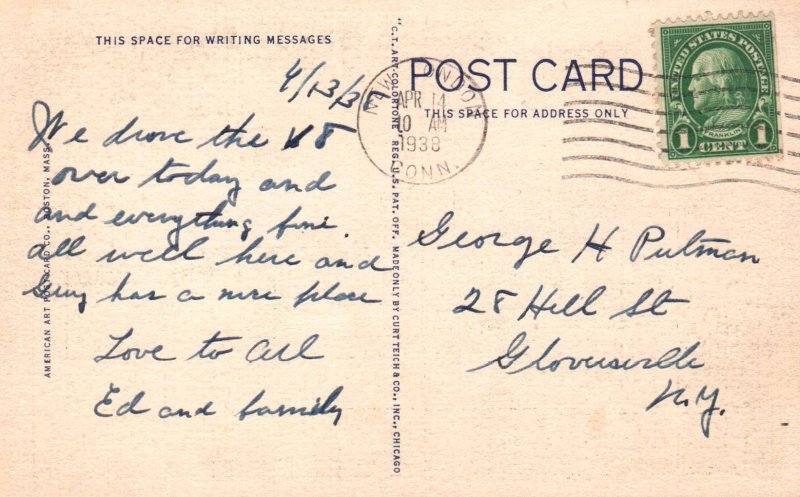 THIS SPACE FOR WRITING MESSAGES
4/13/37
We drove the V8
over today and
and everything fine.
all well here and
Guy has a nice place
Love to all
Ed and family
AMERICAN ART POST CARD CO., BOSTON, MASS.
"C.T. ART-COLORTONE" REG. U.S. PAT. OFF. MADE ONLY BY CURT TEICH & CO., INC., CHICAGO
POST CARD
THIS SPACE FOR ADDRESS ONLY
NEW LONDON
APR 14
10 AM
1938
CONN.
UNITED STATES POSTAGE
FRANKLIN
1 CENT 1
George H Putman
28 Hill St
Gloversville
N.Y.